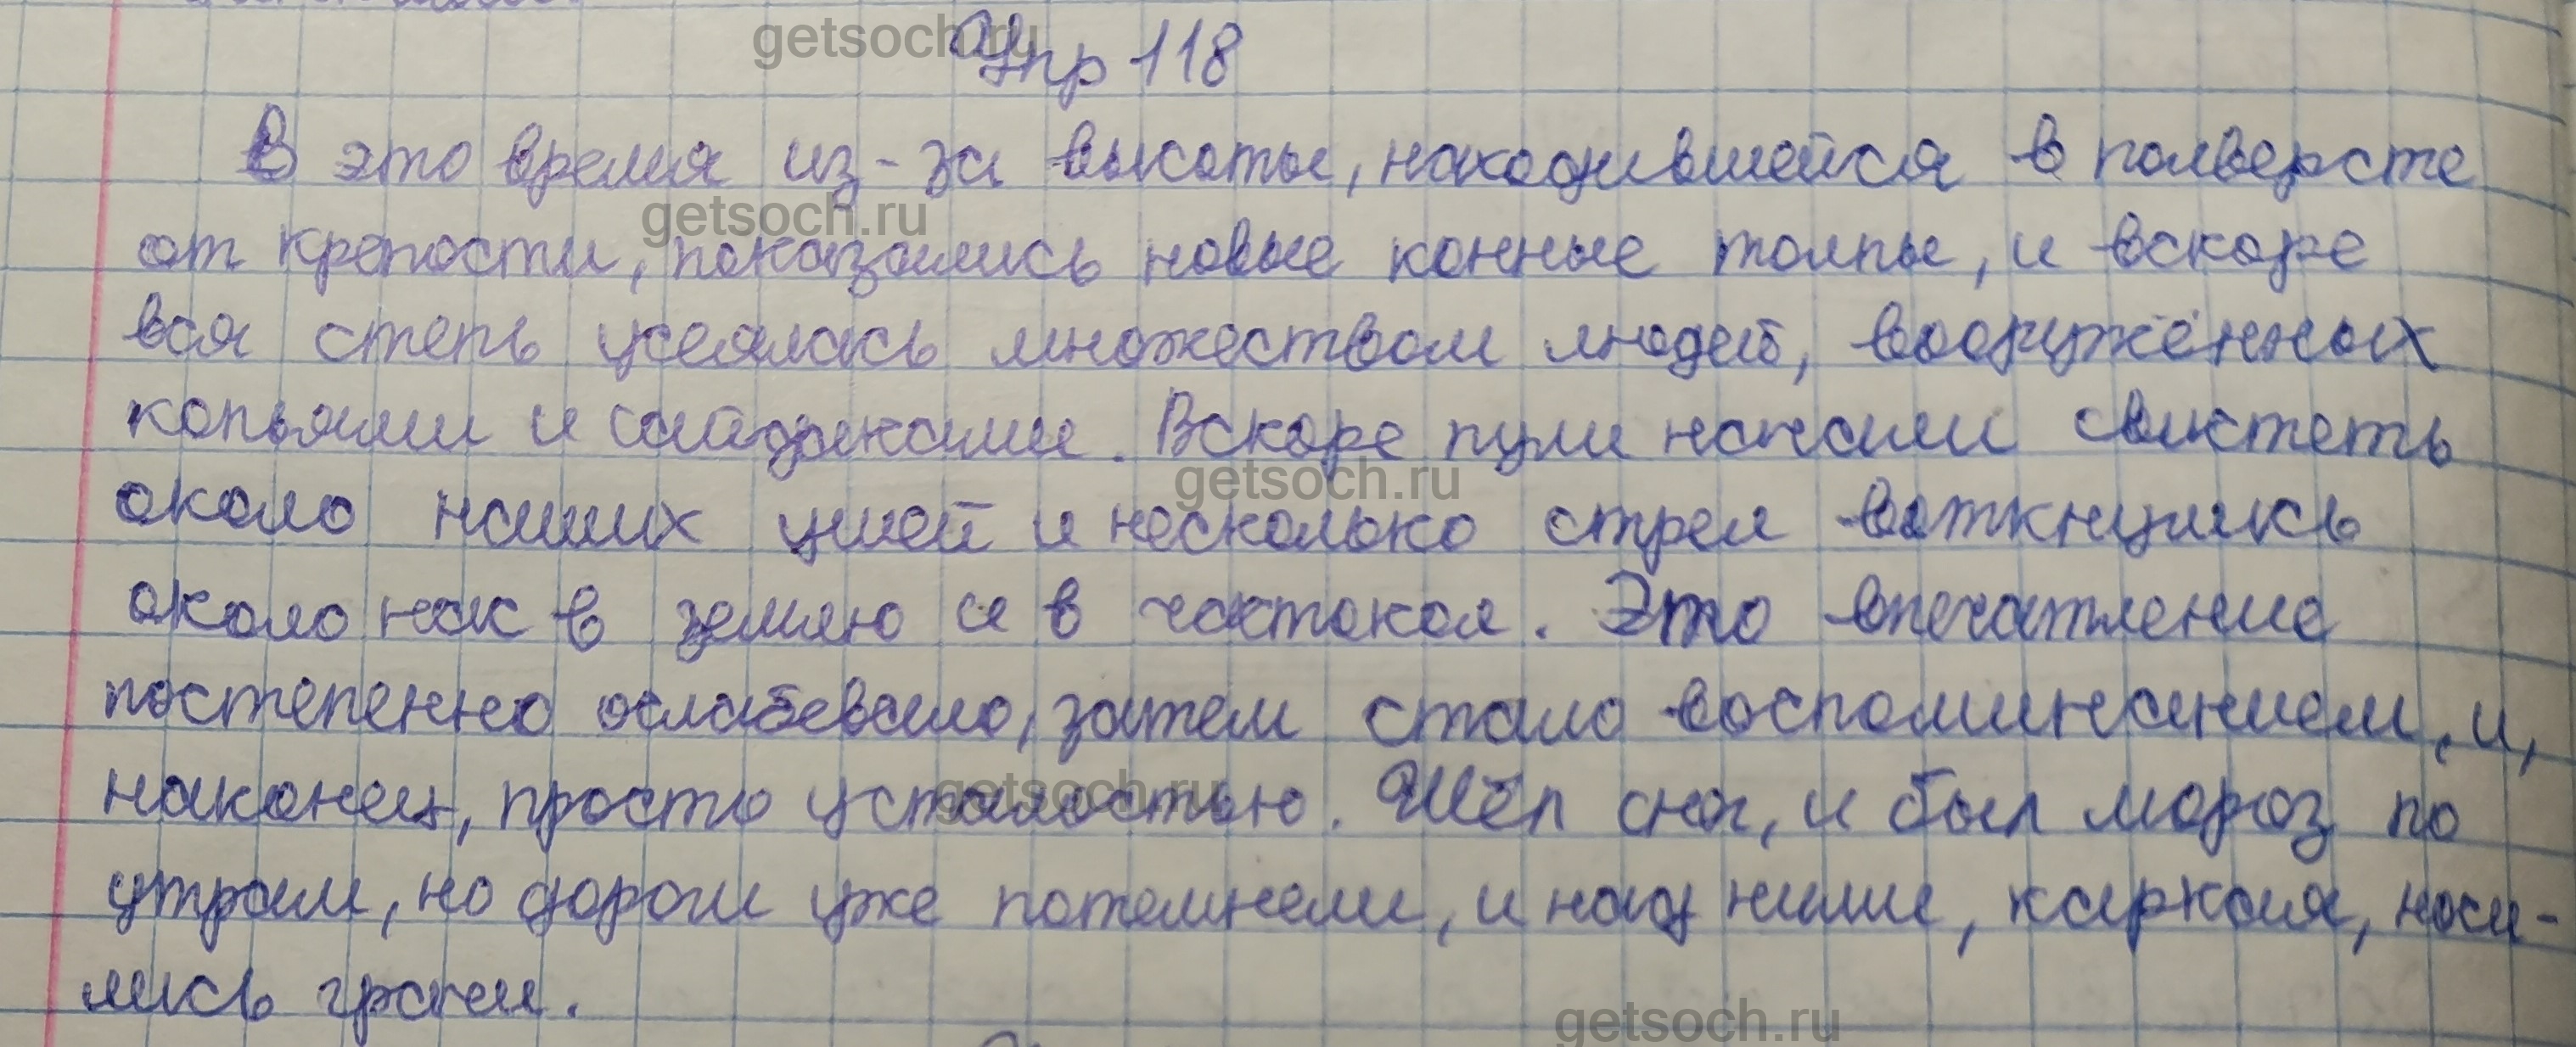 Упр 118
В это время из-за высоты, находившейся в полверсте
от крепости, показались новые конные толпы, и вскоре
вся степь усеялась множеством людей, вооружённых
копьями и сайдаками. Вскоре пули начали свистеть
около наших ушей и несколько стрел воткнулись
около нас в землю и в частокол. Это впечатление
постепенно ослабевало, затем стало воспоминанием, и,
наконец, просто усталостью. Шёл снег, и был мороз по
утрам, но дороги уже потемнели, и над ними, каркая, носи-
лись грачи.
getsoch.ru
getsoch.ru
getsoch.ru
getsoch.ru
getsoch.ru